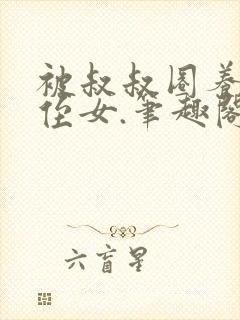 被叔叔圈养
侄女.笔趣阁
六盲星